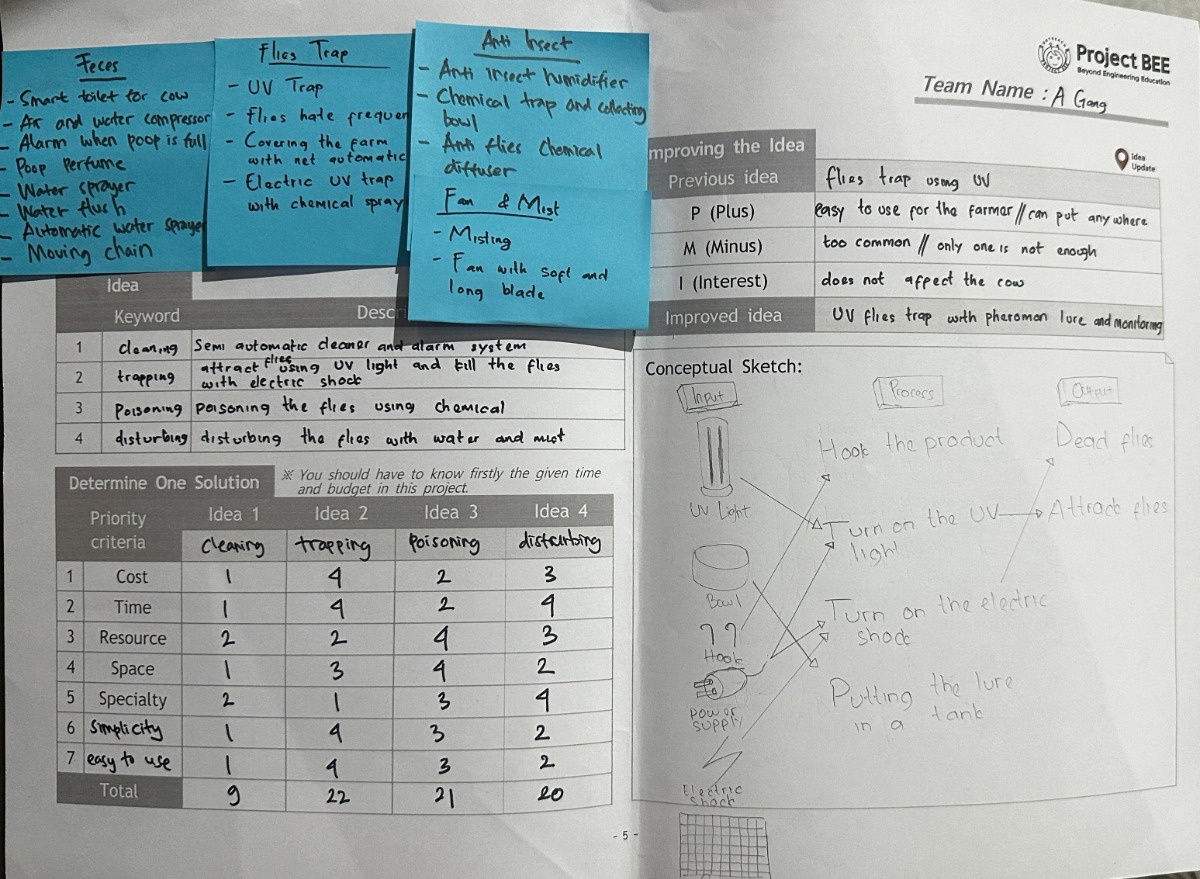 Feces
- Smart toilet for cow
- Air and water compressor
- Alarm when poop is full
- Poop perfume
- Water sprayer
- Water flush
- Automatic water sprayer
- Moving chain
Flies Trap
- UV Trap
- Flies hate frequen
- Covering the farm
with net automatic
- Electric UV trap
with chemical spray
Anti Insect
- Anti insect humidifier
- Chemical trap and collecting
bowl
- Anti flies chemical
diffuser
Fan & Mist
- Misting
- Fan with soft and
long blade
Idea
Keyword Descr
1 cleaning Semi automatic cleaner and alarm system
2 trapping attract flies using UV light and kill the flies
with electric shock
3 Poisoning poisoning the flies using chemical
4 disturbing disturbing the flies with water and mist
Determine One Solution ※ You should have to know firstly the given time
and budget in this project.
Priority criteria Idea 1 Idea 2 Idea 3 Idea 4
cleaning trapping poisoning disturbing
1 Cost 1 4 2 3
2 Time 1 4 2 4
3 Resource 2 2 4 3
4 Space 1 3 4 2
5 Specialty 2 1 3 4
6 Simplicity 1 4 3 2
7 easy to use 1 4 3 2
Total 9 22 21 20
- 5 -
Project BEE
Beyond Engineering Education
Team Name : A Gang
Idea
Update
mproving the Idea
Previous idea flies trap using UV
P (Plus) easy to use for the farmer // can put any where
M (Minus) too common // only one is not enough
I (Interest) does not affect the cow
Improved idea UV flies trap with pheromon lure and monitoring
Conceptual Sketch:
Input Process Output
Hook the product Dead flies
UV Light
Turn on the UV Attrack flies
light
Bowl
Turn on the electric
shock
Hook
Putting the lure
in a tank
power
supply
Electric
shock